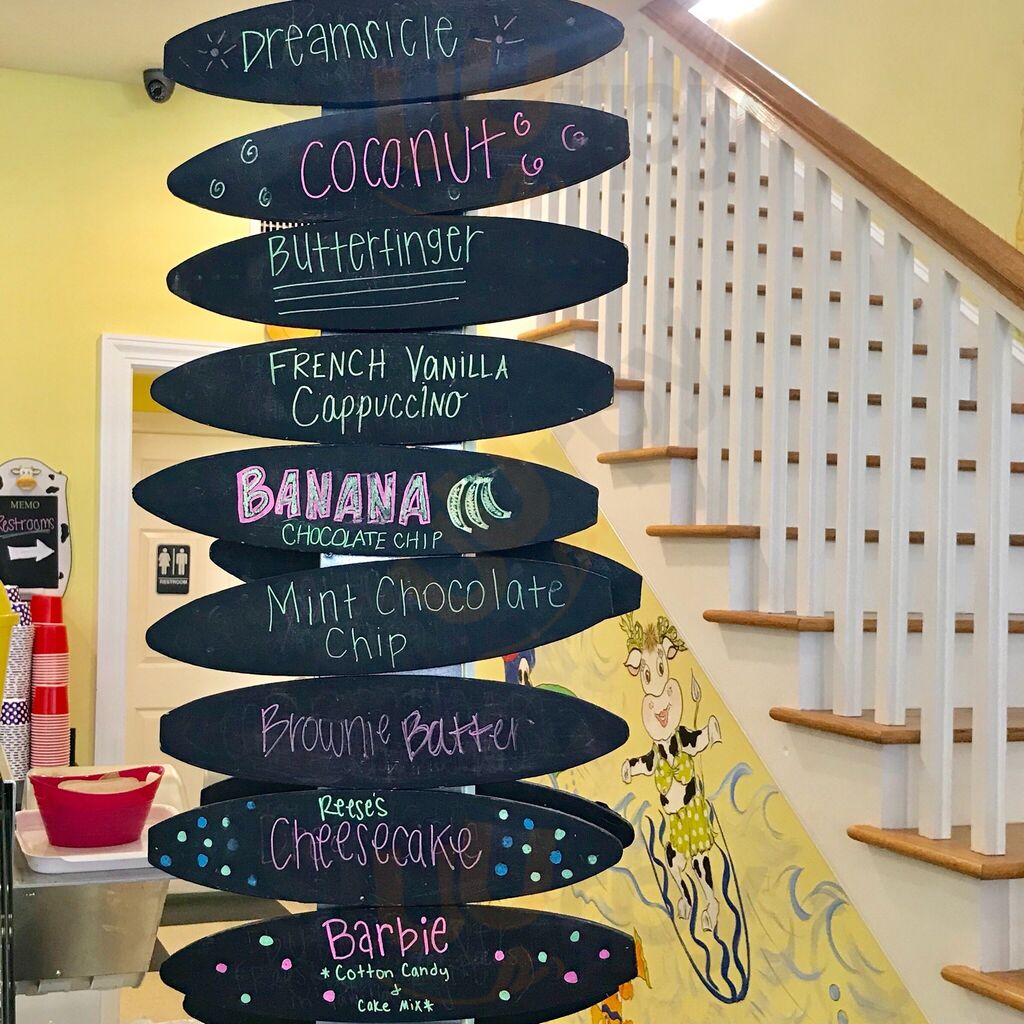 Dreamsicle
Coconut
Butterfinger
FRENCH VANILLA
CappuccINO
BANANA
CHOCOLATE CHIP
Mint Chocolate
Chip
Brownie Batter
REESE'S
Cheesecake
Barbie
*Cotton Candy
&
Cake Mix*
MEMO
Restrooms
RESTROOM